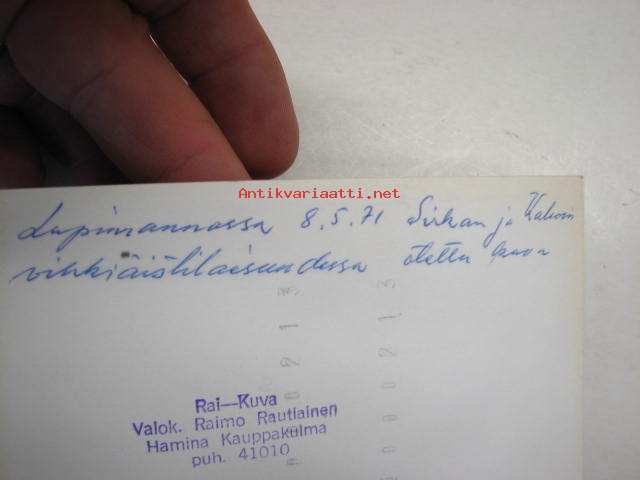 Antikvariaatti.net
Lapinrannassa 8.5.71 Sirkan ja Kalevin
vihkiäistilaisuudessa otettu kuva
0 0 0 2 1 3
0 0 0 2 1 3
Rai—Kuva
Valok. Raimo Rautiainen
Hamina Kauppakulma
puh. 41010